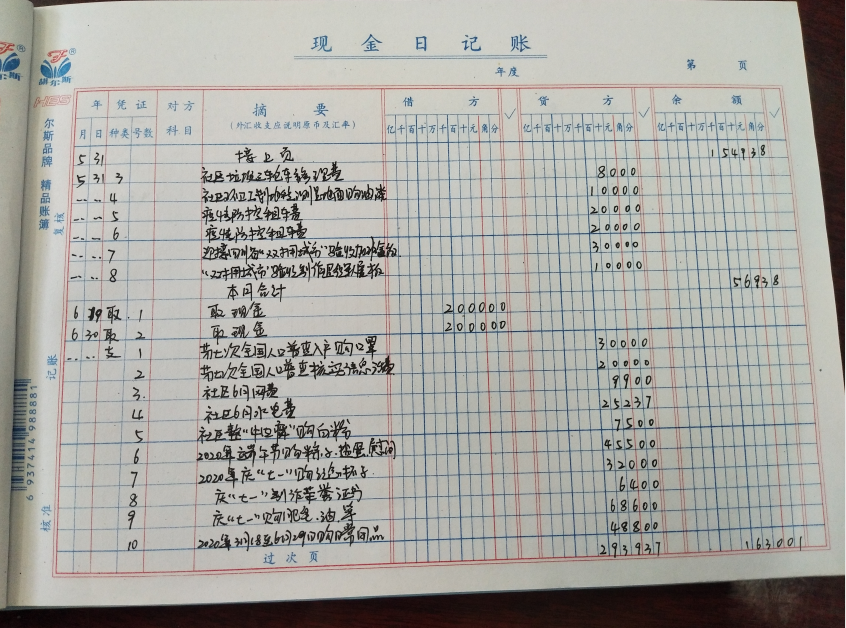 现金日记账
年度 第 页
年 凭证 对方 摘要 借方 ✓ 贷方 ✓ 余额 ✓
月 日 种类 号数 科目 (外汇收支应说明原币及汇率) 亿千百十万千百十元角分 亿千百十万千百十元角分 亿千百十万千百十元角分
5 31 接上页 154938
5 31 3 社区垃圾三轮车修理费 8000
.. .. 4 10000
.. .. 5 疫情防控租车费 20000
.. .. 6 疫情防控租车费 20000
.. .. 7 迎接四川省"双拥城市"验收 30000
.. .. 8 "双拥城市"验收制作 展板 10000
本月合计 56938
6 19 取 1 取现金 200000
6 30 取 2 取现金 200000
.. .. 支 1 第七次全国人口普查入户购口罩 30000
2 第七次全国人口普查 信息 费 20000
3 社区6月网费 9900
4 社区6月水电费 25237
5 社区 购 7500
6 2020年端午节购粽子、盐蛋慰问 45500
7 2020年庆"七一"购 杯子 32000
8 庆"七一"制作荣誉证书 6400
9 庆"七一"购 油、 68600
10 2020年3月18至6月29日购日常用品 48800
过次页 293937 163001
尔斯品牌 精品账簿
复核
记账
核准
胡尔斯
HDS
6 937414 988881